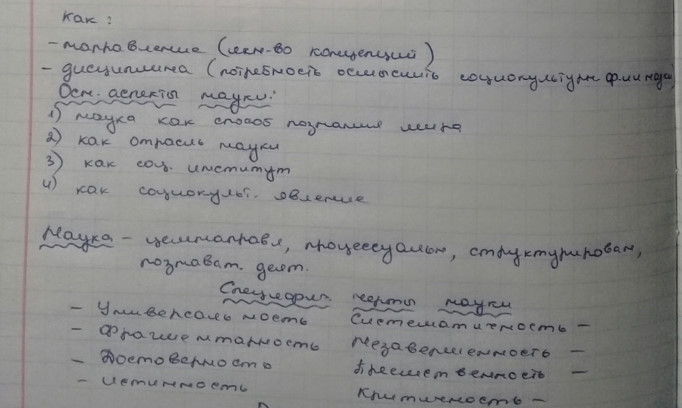 как:
- направление (мн-во концепций)
- дисциплина (потребность осмыслить социокультурн
Осн. аспекты науки:
1) наука как способ познания мира
2) как отрасль науки
3) как соц. институт
4) как социокульт. явление
Наука - целенаправл, процессуальн, структурирован,
познават. деят.
Специфич. черты науки
- Универсальность Систематичность -
- Фрагментарность Незавершенность -
- Достоверность Преемственность -
- Истинность Критичность -